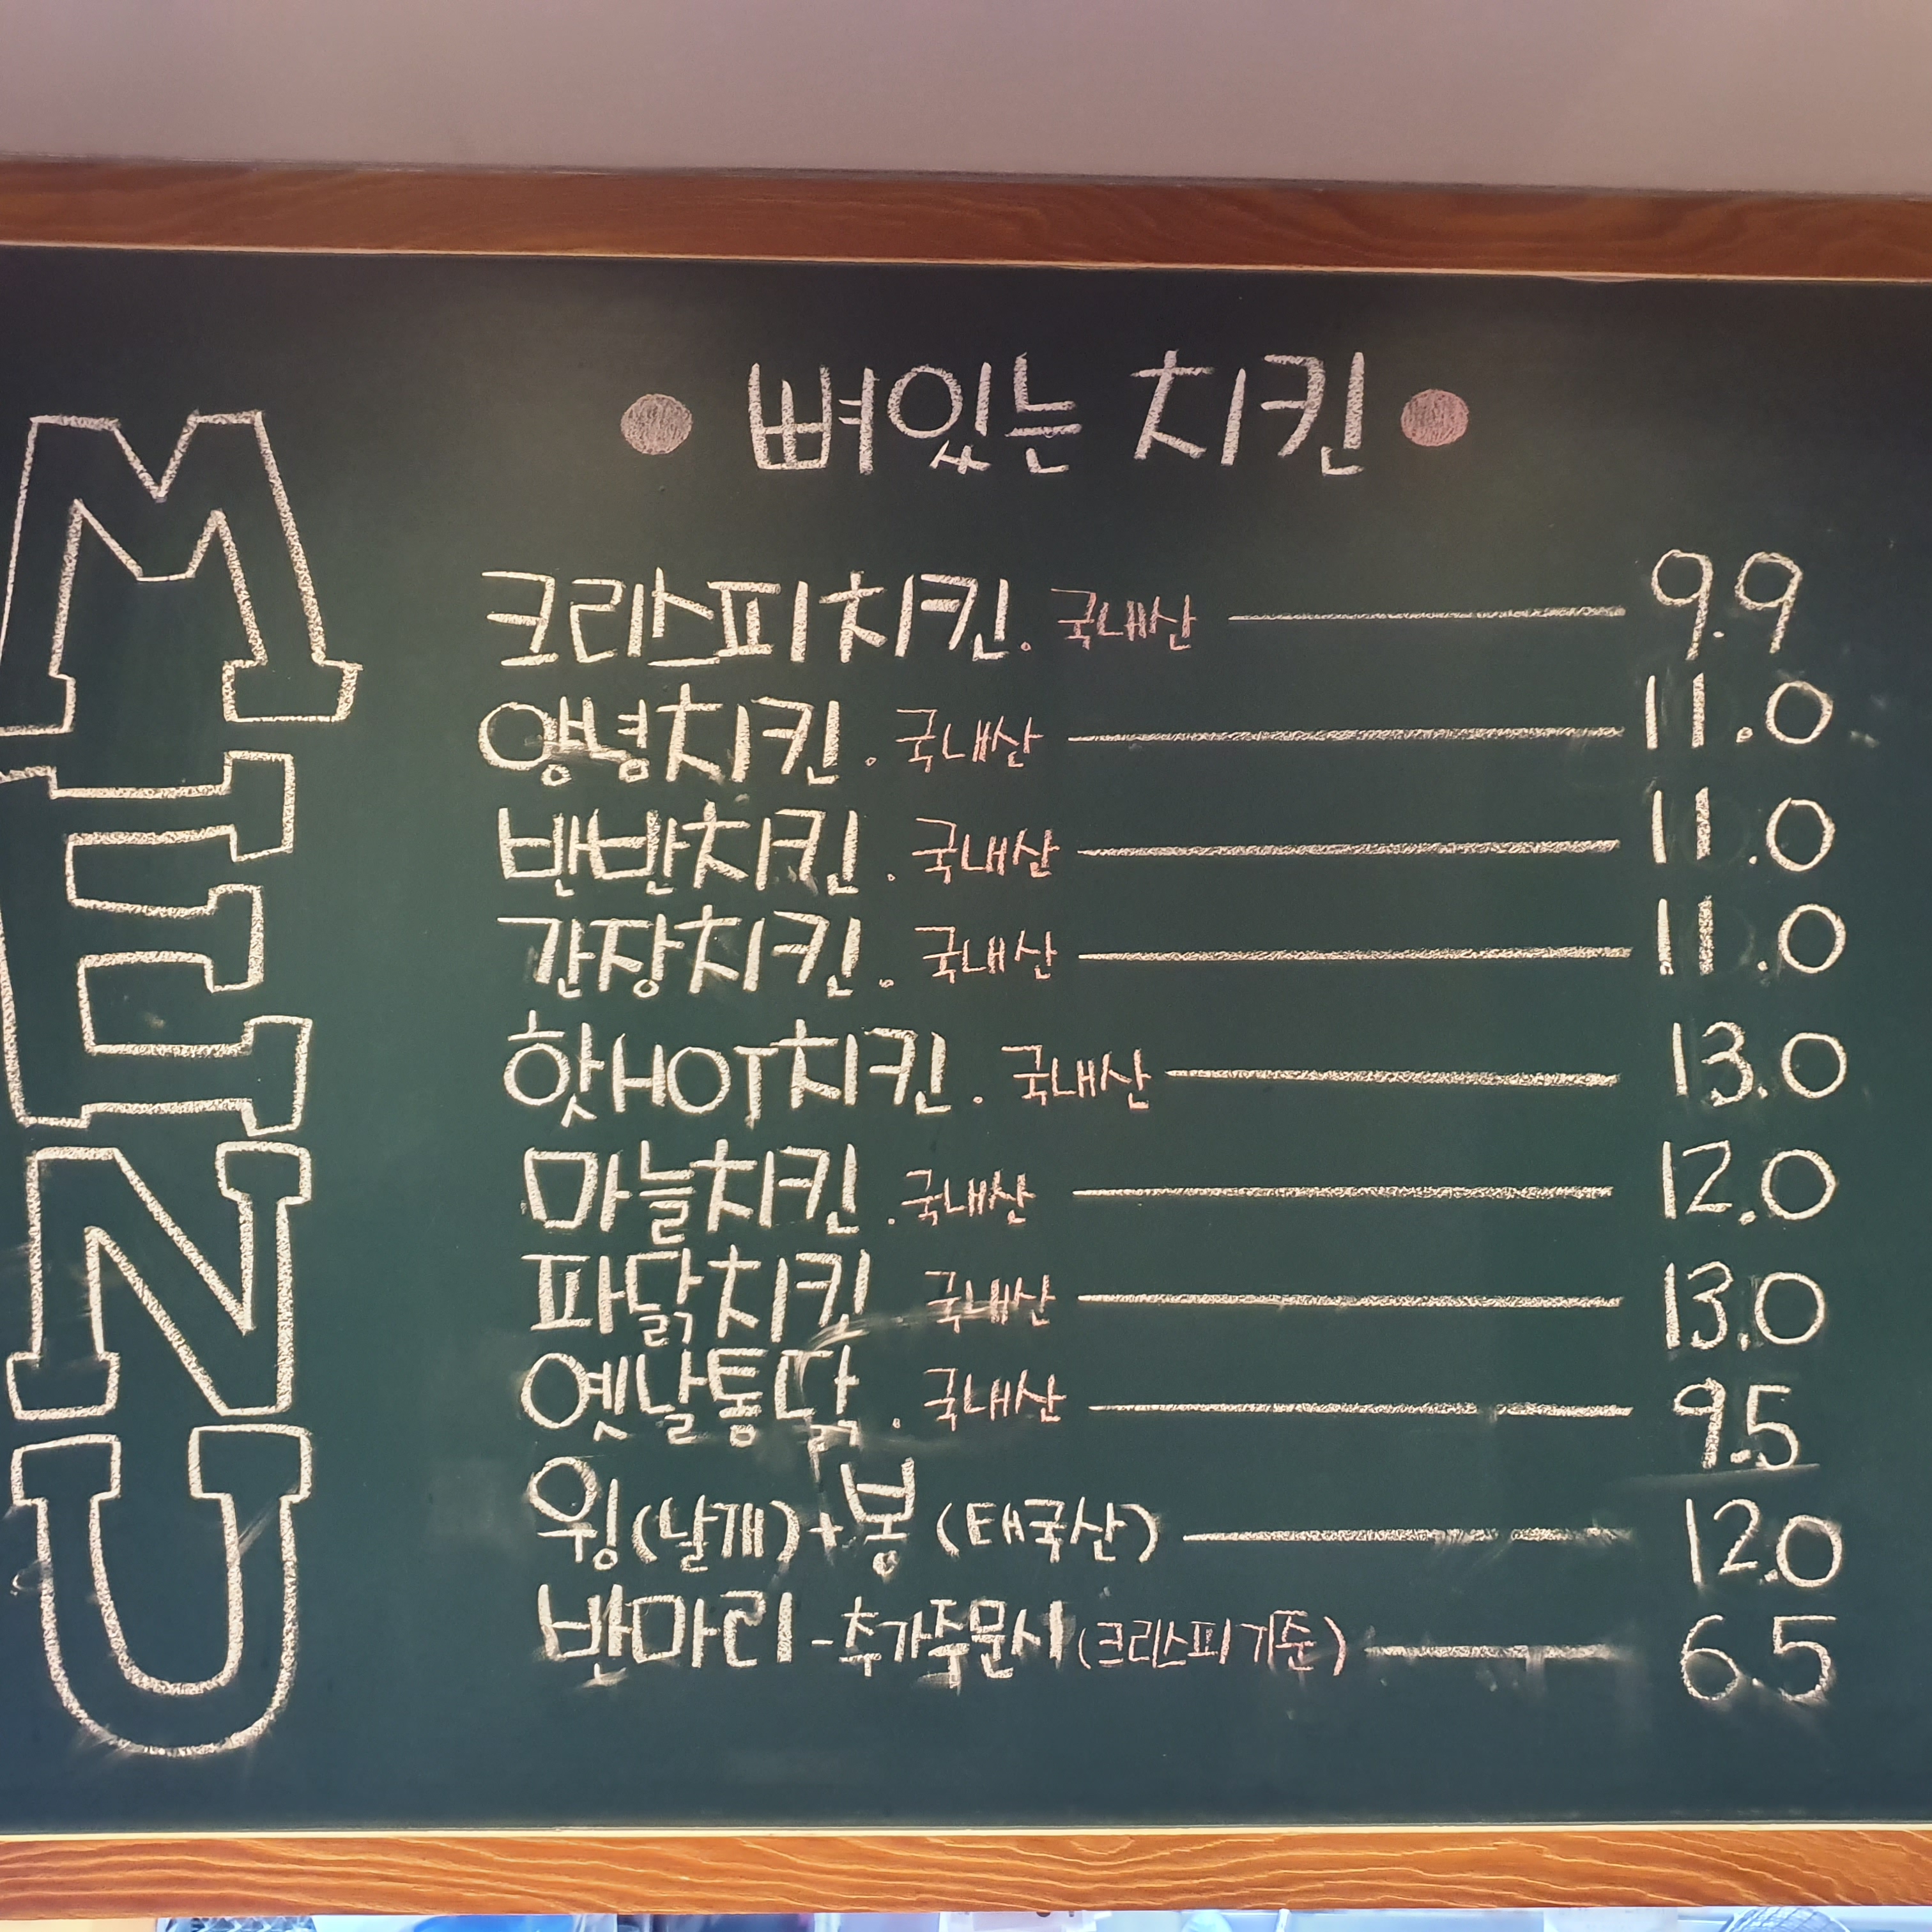 MENU
뼈있는 치킨
크리스피치킨. 국내산 9.9
양념치킨. 국내산 11.0
반반치킨. 국내산 11.0
간장치킨. 국내산 11.0
핫HOT치킨. 국내산 13.0
마늘치킨. 국내산 12.0
파닭치킨 국내산 13.0
옛날통닭. 국내산 9.5
윙(날개)+봉(태국산) 12.0
반마리-추가주문시(크리스피기준) 6.5